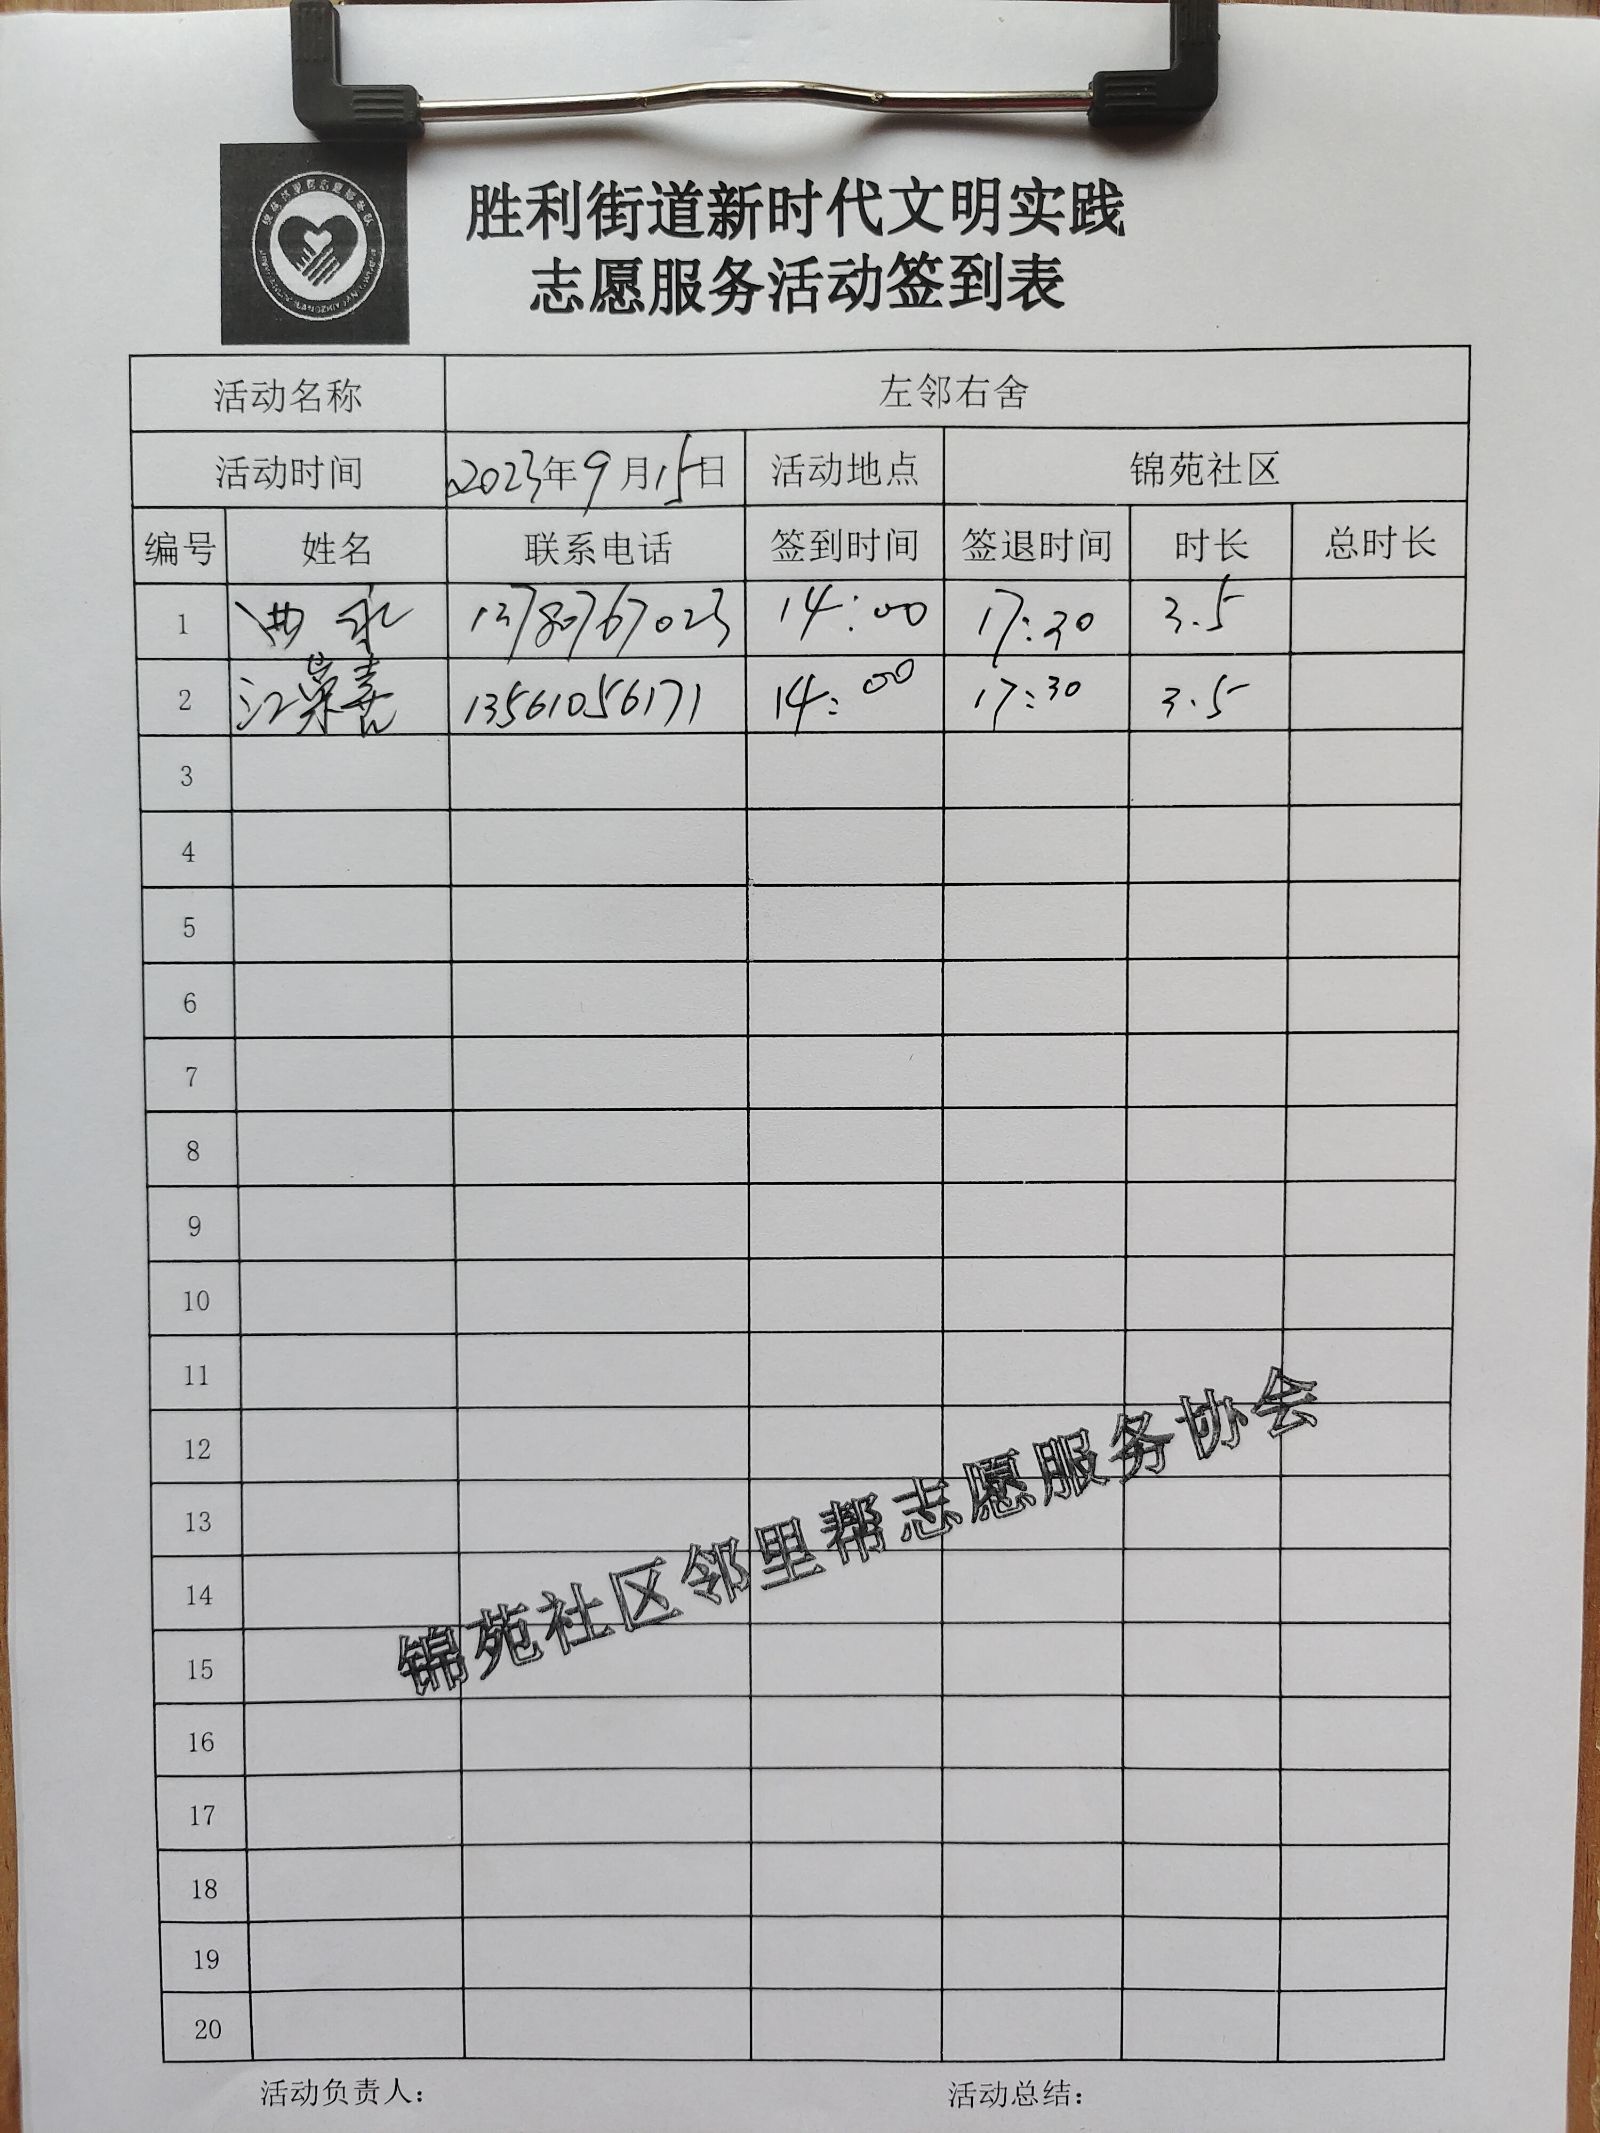 胜利街道新时代文明实践
志愿服务活动签到表
活动名称 左邻右舍
活动时间 2023年9月15日 活动地点 锦苑社区
编号 姓名 联系电话 签到时间 签退时间 时长 总时长
1 13780767023 14:00 17:30 3.5
2 江荣善 13561056171 14:00 17:30 3.5
3
4
5
6
7
8
9
10
11
12
13
14
15
16
17
18
19
20
锦苑社区邻里帮志愿服务协会
活动负责人： 活动总结：